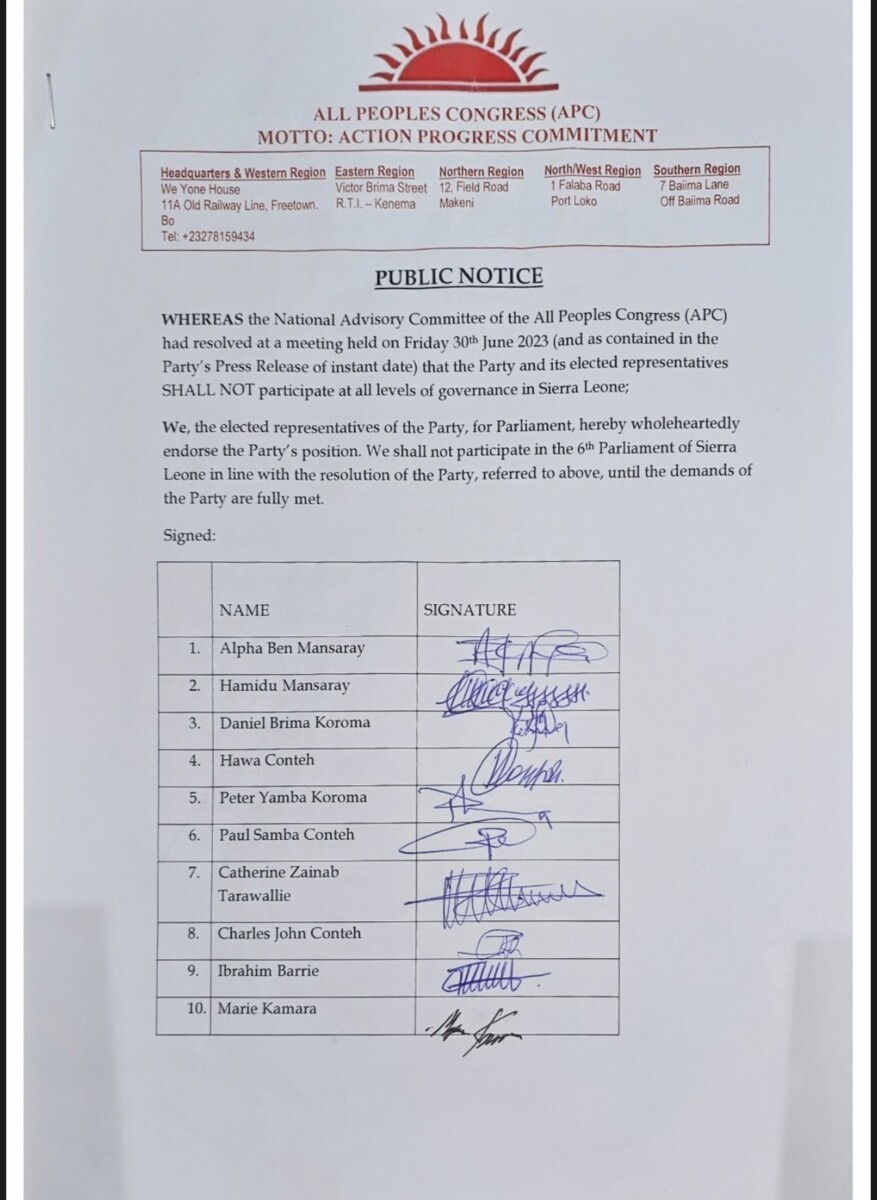 ALL PEOPLES CONGRESS (APC)
MOTTO: ACTION PROGRESS COMMITMENT
Headquarters & Western Region
We Yone House
11A Old Railway Line, Freetown.
Bo
Tel: +23278159434
Eastern Region
Victor Brima Street
R.T.I. – Kenema
Northern Region
12, Field Road
Makeni
North/West Region
1 Falaba Road
Port Loko
Southern Region
7 Baiima Lane
Off Baiima Road
PUBLIC NOTICE
WHEREAS the National Advisory Committee of the All Peoples Congress (APC)
had resolved at a meeting held on Friday 30th June 2023 (and as contained in the
Party's Press Release of instant date) that the Party and its elected representatives
SHALL NOT participate at all levels of governance in Sierra Leone;
We, the elected representatives of the Party, for Parliament, hereby wholeheartedly
endorse the Party's position. We shall not participate in the 6th Parliament of Sierra
Leone in line with the resolution of the Party, referred to above, until the demands of
the Party are fully met.
Signed:
NAME SIGNATURE
1. Alpha Ben Mansaray
2. Hamidu Mansaray
3. Daniel Brima Koroma
4. Hawa Conteh
5. Peter Yamba Koroma
6. Paul Samba Conteh
7. Catherine Zainab
Tarawallie
8. Charles John Conteh
9. Ibrahim Barrie
10. Marie Kamara